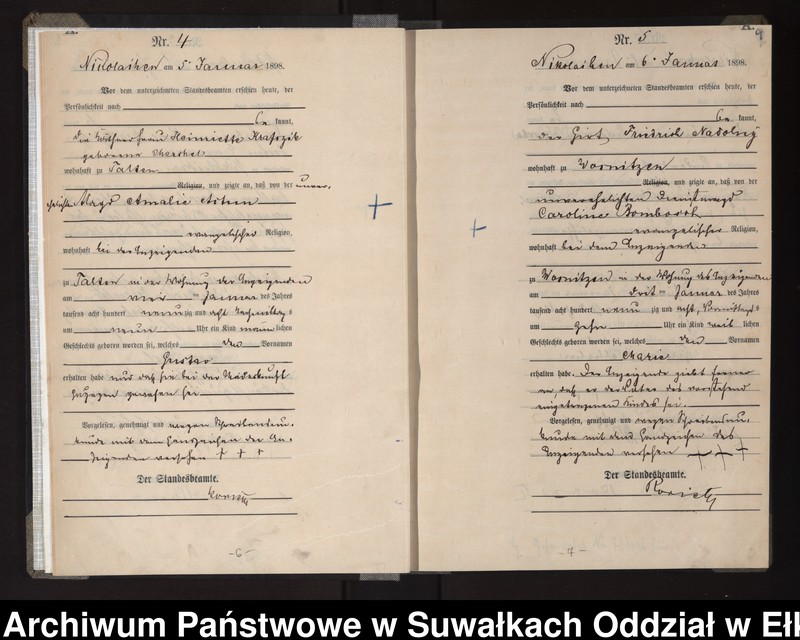 Nr. 4
Nikolaiken am 5. Januar 1898.
Vor dem unterzeichneten Standesbeamten erschien heute, der
Persönlichkeit nach
be kannt,
die
geborene
wohnhaft zu Talten
Religion, und zeigte an, daß von der unver-
ehelichten Magd Amalie
evangelischer Religion,
wohnhaft bei der Anzeigenden
zu Talten in der Wohnung der Anzeigenden
am vier ten Januar des Jahres
tausend acht hundert neun zig und acht Nachmittag s
um neun Uhr ein Kind männ lichen
Geschlechts geboren worden sei, welches den Vornamen
Gustav
erhalten habe und daß sie bei der Niederkunft
zugegen gewesen sei
Vorgelesen, genehmigt und wegen Schreibensun-
kunde mit dem Handzeichen der An-
zeigenden versehen + + +
Der Standesbeamte.
-6-
A.
9
Nr. 5
Nikolaiken am 6. Januar 1898.
Vor dem unterzeichneten Standesbeamten erschien heute, der
Persönlichkeit nach
be kannt,
der Hirt Friedrich Nadolny
wohnhaft zu Wosnitzen
Religion, und zeigte an, daß von der
unverehelichten Dienstmagd
Caroline
evangelischer Religion,
wohnhaft bei dem Anzeigenden
zu Wosnitzen in der Wohnung des Anzeigenden
am drit ten Januar des Jahres
tausend acht hundert neun zig und acht, Vormittag s
um zehn Uhr ein Kind weib lichen
Geschlechts geboren worden sei, welches den Vornamen
Marie
erhalten habe. Der Anzeigende giebt ferner
an, daß er der Vater des vorstehend
eingetragenen Kindes sei.
Vorgelesen, genehmigt und wegen Schreibensun-
kunde mit dem Handzeichen des
Anzeigenden versehen + + +
Der Standesbeamte.
-7-
Archiwum Państwowe w Suwałkach Oddział w Eł